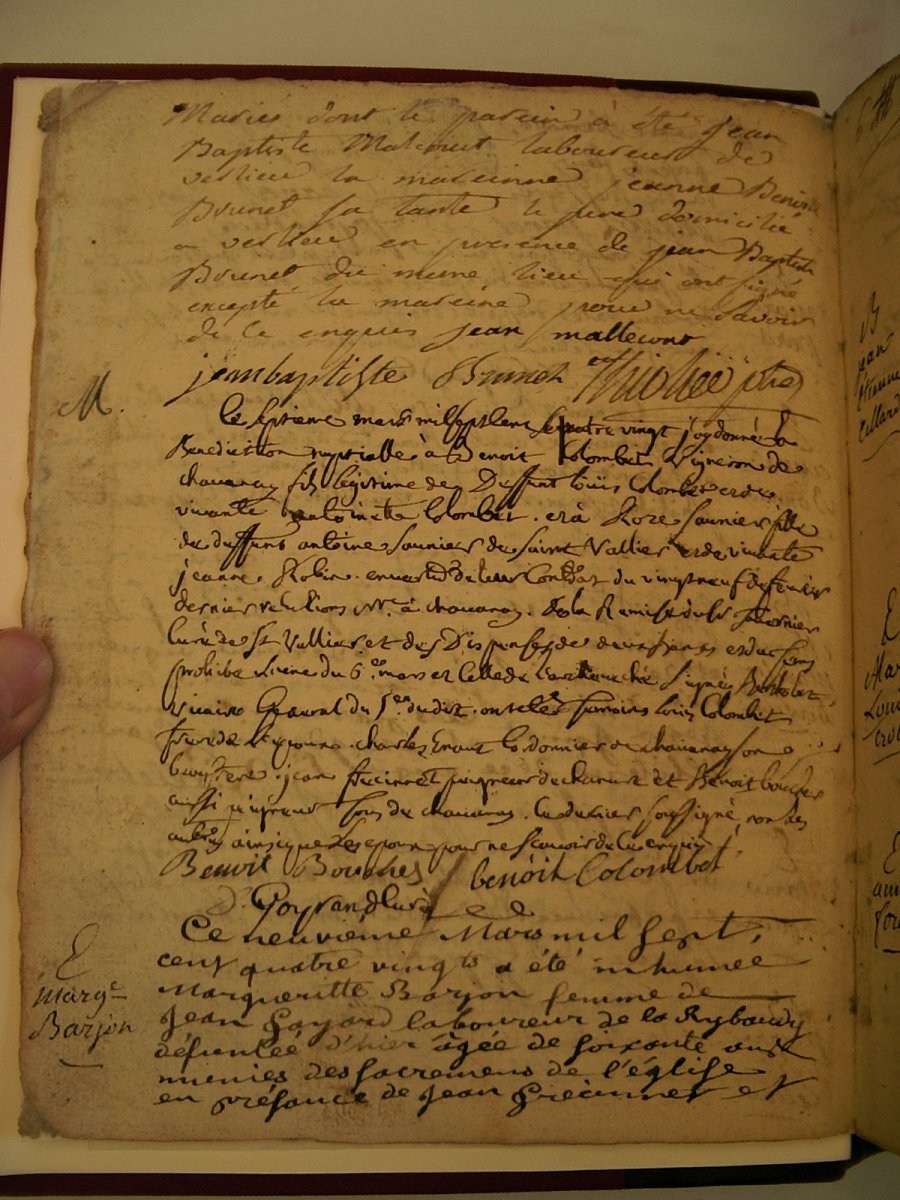 Mariés dont le parein à été jean
Baptiste Malcourt laboureur de
verlieu la mareinne jeanne Benoi
Brunet sa tante le pere domicilié
a verlieu en presence de jean Baptiste
Brunet du meme lieu qui ont signé
excepté la mareine pour ne savoir
de ce enquis jean mallecour
jean baptiste Brunet ptre
M.
Ce septieme mars mil sept cent quatre vingt j'ay donné la
Benediction nuptialle à Benoit Colombet Vigneron de
chavanay fils legitime de Deffunt louis Colombet et de
vivante antoinette Colombet. et à Roze saunier fille
de deffunt antoine saunier de saint Vallier et de vivante
jeanne Robin. en vertu de leur Contrat du vingt neuf fevrier
dernier à chavanay. de la Remise de Sr
Curé de St Vallier. et des Dispenses de deux bans et du tems
prohibé vienne du 6e mars et celle de signés
vicaire General du 5e dudit. ont etés temoins louis Colombet
frere de l'epoux. charles Cordonnier de chavanay son
beaufrere. jean frecinet peigneur de chanvre et Benoit boucher
aussi peigneur tous de chavanay. le dernier soussigné, non les
autres ainsi que l'epouse pour ne scavoir de ce enquis
Benoit Bouches benoit Colombet
Curé
E
Marg.e
Barjon
Ce neuvieme Mars mil sept,
cent quatre vingts a été inhumée
Margueritte Barjon femme de
Jean Gayard laboureur de la Rybaudy
défuntée d'hier âgée de soixante ans
munies des sacremens de l'église
en présance de Jean Frecinnet et
B
jean
étienne
E
Mar
Loui
E